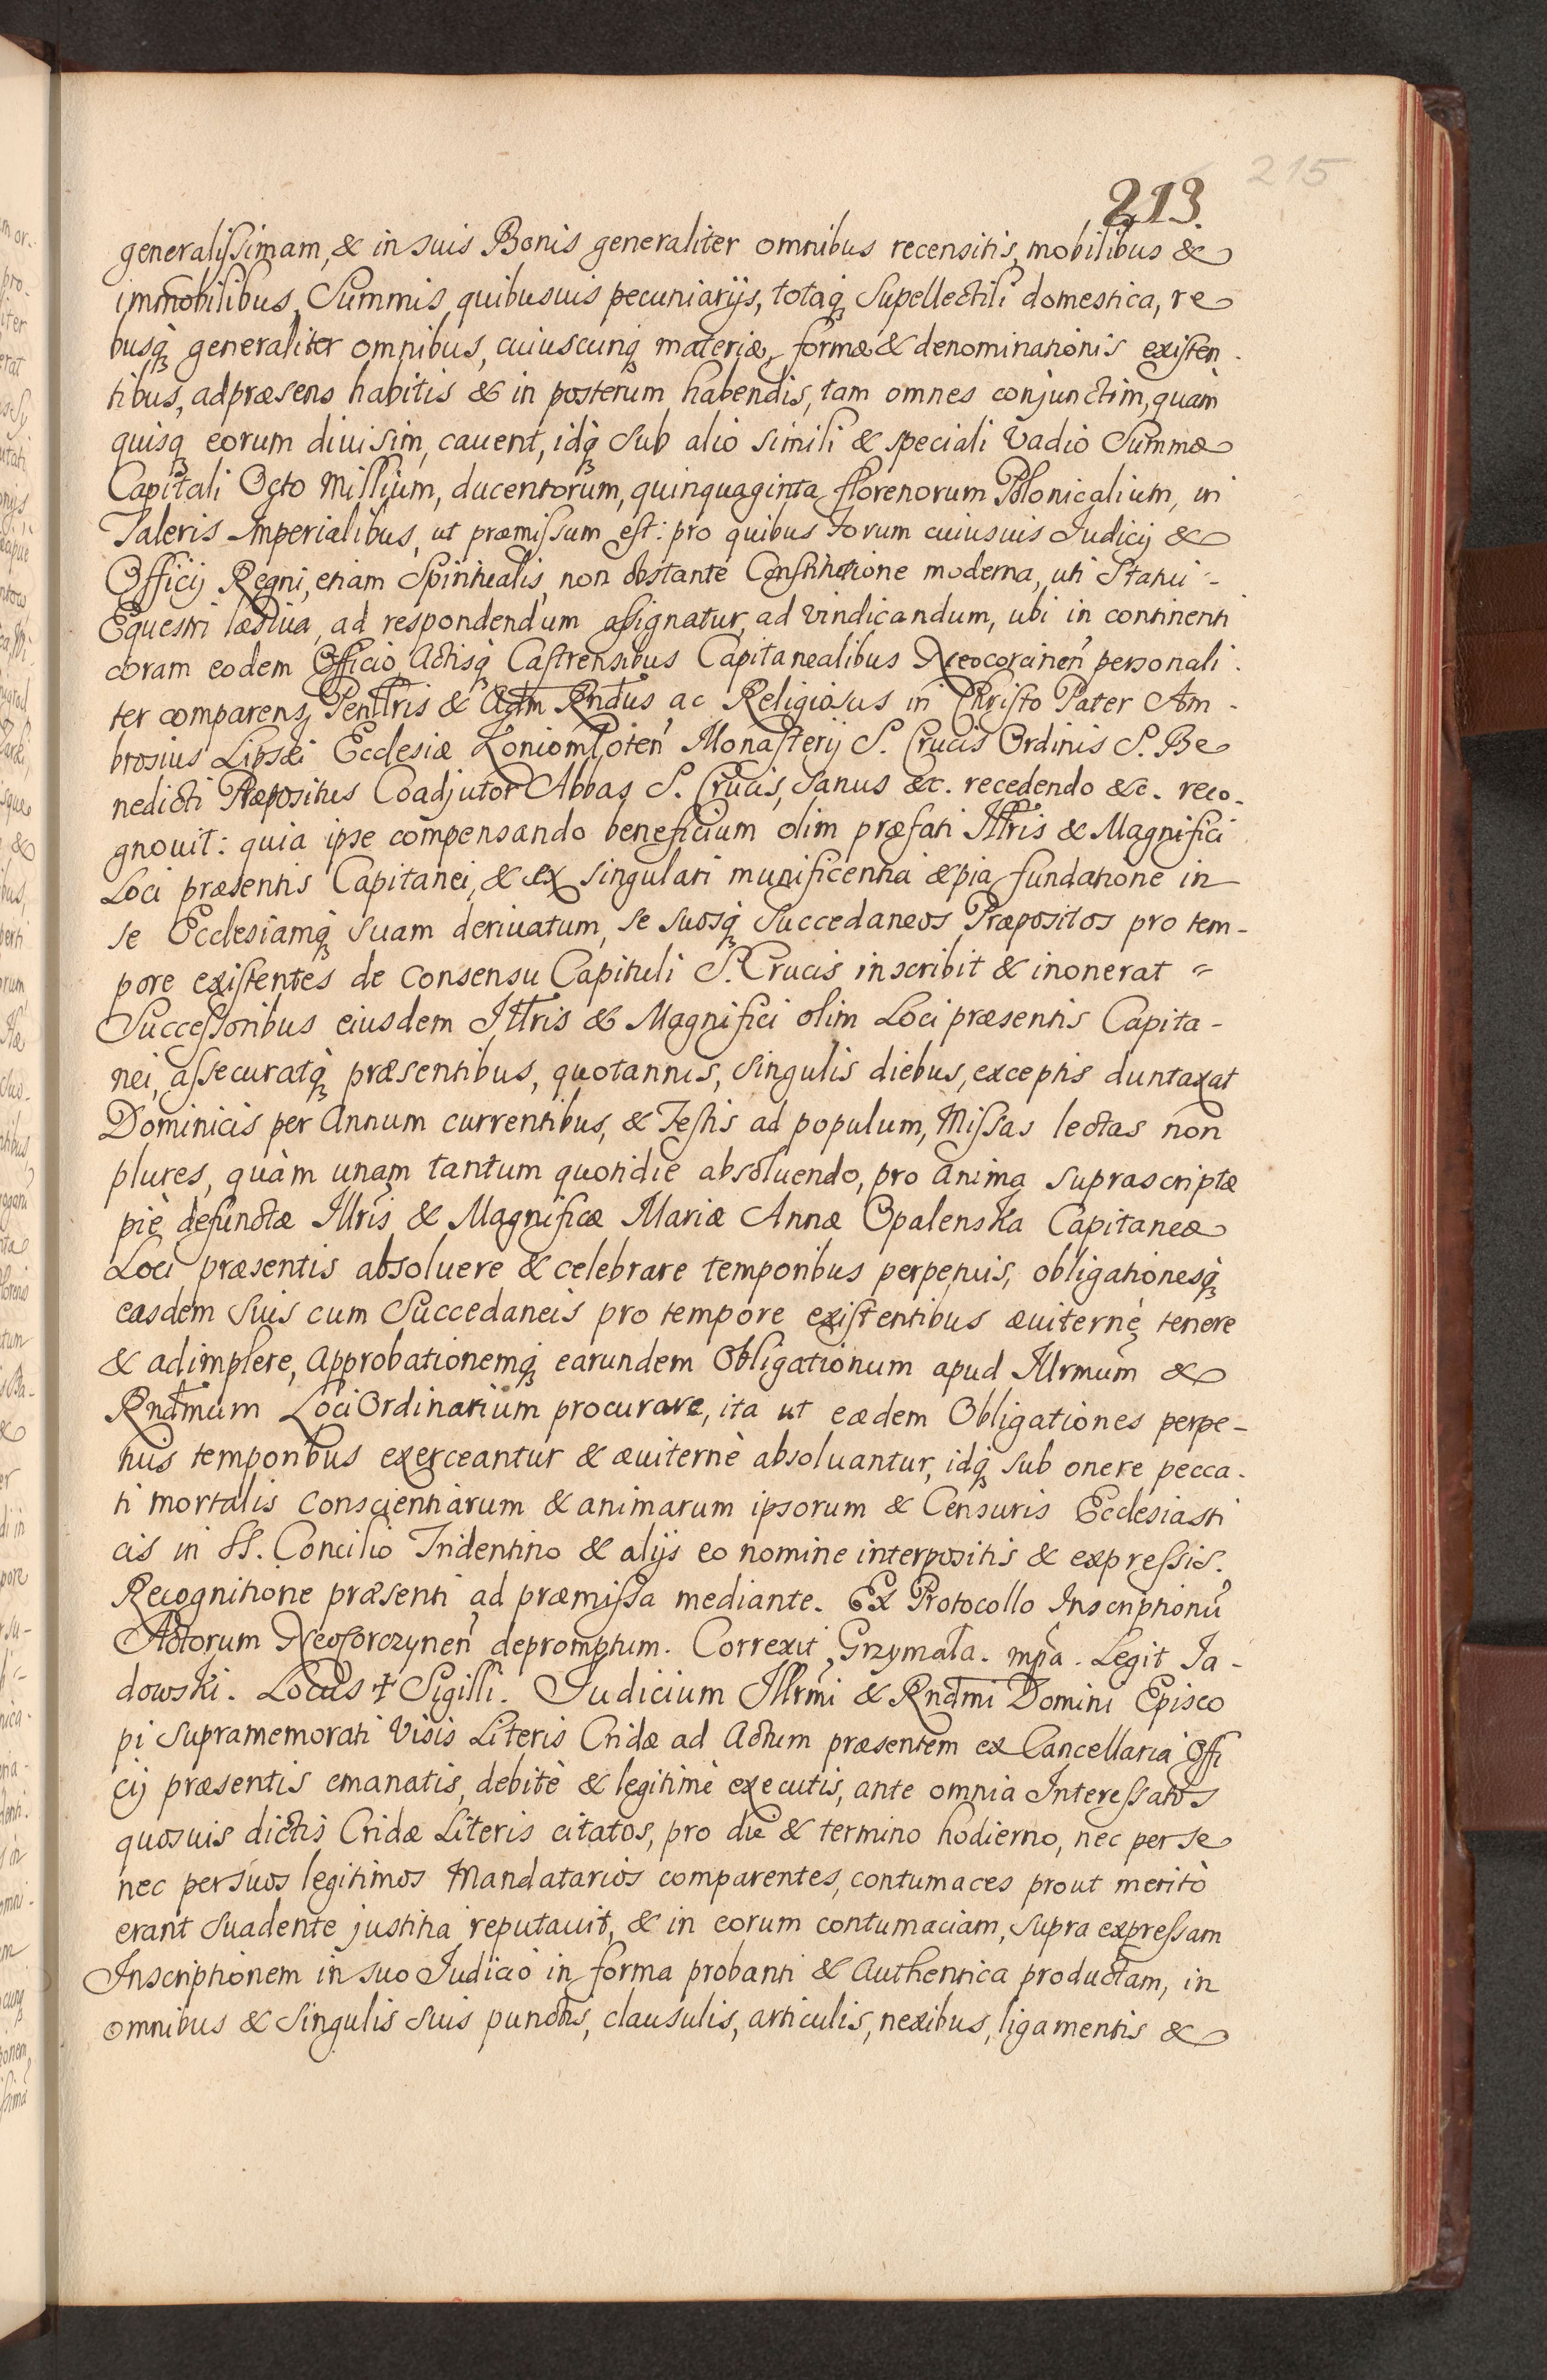 215
213.
generalissimam, & in suis Bonis generaliter omnibus recensitis, mobilibus &
immobilibus, Summis, quibusuis pecuniarijs, totaq3 Supellectili domestica, re
busq3 generaliter omnibus, cuiuscunq3 materiæ, formæ & denominationis existen-
tibus, ad præsens habitis & in posterum habendis, tam omnes conjunctim, quàm
quisq3 eorum diuisim, cauent, idq3 sub alio simili & speciali Vadio Summæ
Capitali Octo Millium, ducentorum, quinquaginta florenorum Polonicalium, in
Taleris Imperialibus, ut præmissum est: pro quibus forum cuiusuis Judicij &
Officij Regni, etiam Spiritualis, non obstante Constitutione moderna, uti Statui-
Equestri læsiua, ad respondendum assignatur, ad vindicandum, ubi in continenti
coram eodem Officio, Actisq3 Castrensibus Capitanealibus Neocorcinen personali-
ter comparens, Penllris & Adm Rndus ac Religiosus in Christo Pater Am-
brosius Lipski Ecclesiæ Koniomłoten Monasterij S. Crucis Ordinis S. Be
nedicti Præpositus Coadjutor Abbas S. Crucis, Sanus &c. recedendo &c. reco-
gnouit: quia ipse compensando beneficium olim præfati Jllris & Magnifici
Loci præsentis Capitanei, & ex singulari munificentia æpia fundatione in
se Ecclesiamq3 suam deriuatum, se suosq3 Succedaneos Præpositos pro tem-
pore existentes de consensu Capituli S. Crucis inscribit & inonerat =
Successoribus eiusdem Jllris & Magnifici olim Loci præsentis Capita-
nei, assecuratq3 præsentibus, quotannis, singulis diebus, exceptis duntaxat
Dominicis per Annum currentibus, & Festis ad populum, Missas lectas non
plures, quàm unam tantum quotidie absoluendo, pro anima suprascriptæ
piè defunctæ Jllris & Magnificæ Mariæ Annæ Opalenska Capitaneæ
Loci præsentis absoluere & celebrare temporibus perpetuis, obligationesq3
easdem suis cum Succedaneis pro tempore existentibus æuiternè tenere
& adimplere, Approbationemq3 earundem Obligationum apud Jllrmum &
Rndmum Loci Ordinarium procurare, ita ut eædem Obligationes perpe-
tuis temporibus exerceantur & æuiternè absoluantur, idq3 sub onere pecca-
ti mortalis conscientiarum & animarum ipsorum & Censuris Ecclesiasti
cis in SS. Concilio Tridentino & alijs eo nomine interpositis & expressis.
Recognitione præsenti ad præmissa mediante. Ex Protocollo Inscriptionũ
Actorum Neoforczynen depromptum. Correxit Grzymała. mpa. Legit Ja-
dowski. Locus + Sigilli. Judicium Jllrmi & Rndmi Domini Episco
pi supramemorati Visis Literis Cridæ ad Actum præsentem ex Cancellaria Offi
cij præsentis emanatis, debitè & legitimè executis, ante omnia Interessatos
quosuis dictis Cridæ Literis citatos, pro die & termino hodierno, nec per se
nec per suos legitimos Mandatarios comparentes, contumaces prout meritò
erant suadente justitia reputauit, & in eorum contumaciam, supra expressam
Inscriptionem in suo Judicio in forma probanti & Authentica productam, in
omnibus & singulis suis punctis, clausulis, articulis, nexibus, ligamentis &